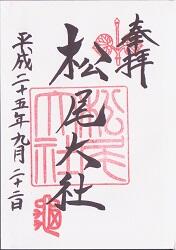 奉拝
松尾大社
平成二十五年九月二十二日
松尾大社